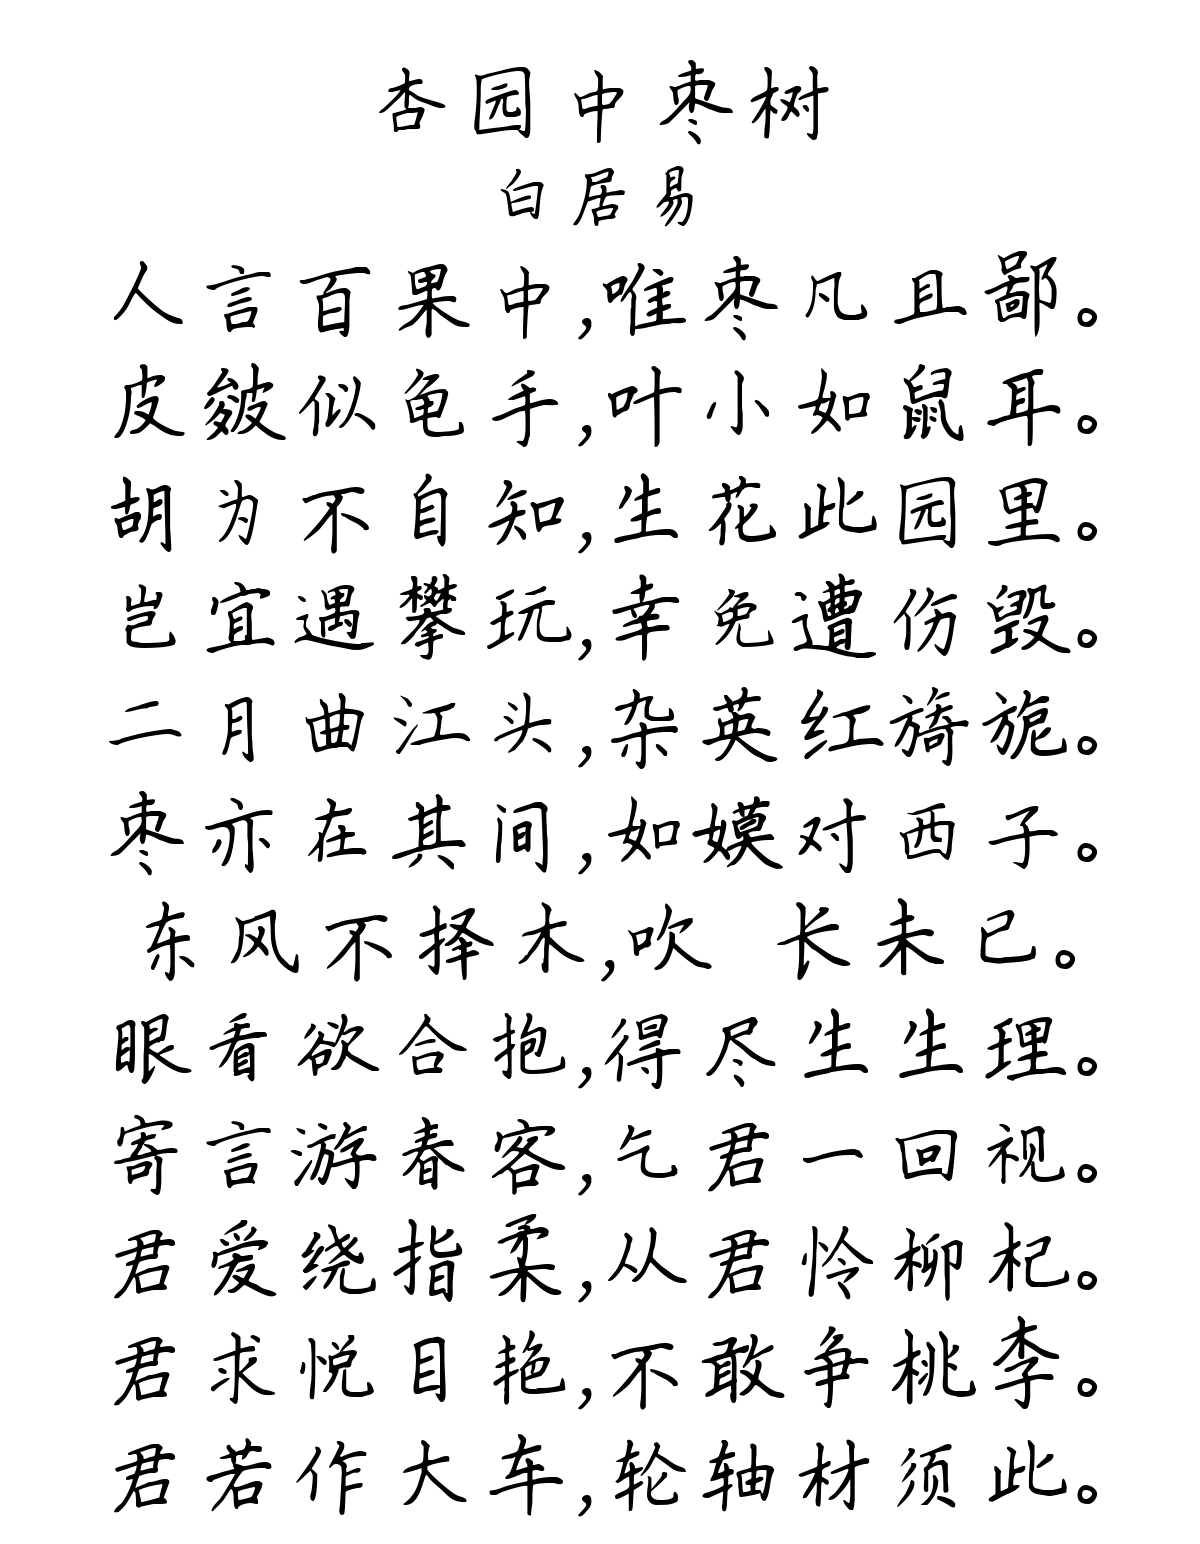 杏园中枣树
白居易
人言百果中,唯枣凡且鄙。
皮皴似龟手,叶小如鼠耳。
胡为不自知,生花此园里。
岂宜遇攀玩,幸免遭伤毁。
二月曲江头,杂英红旖旎。
枣亦在其间,如嫫对西子。
东风不择木,吹 长未已。
眼看欲合抱,得尽生生理。
寄言游春客,乞君一回视。
君爱绕指柔,从君怜柳杞。
君求悦目艳,不敢争桃李。
君若作大车,轮轴材须此。